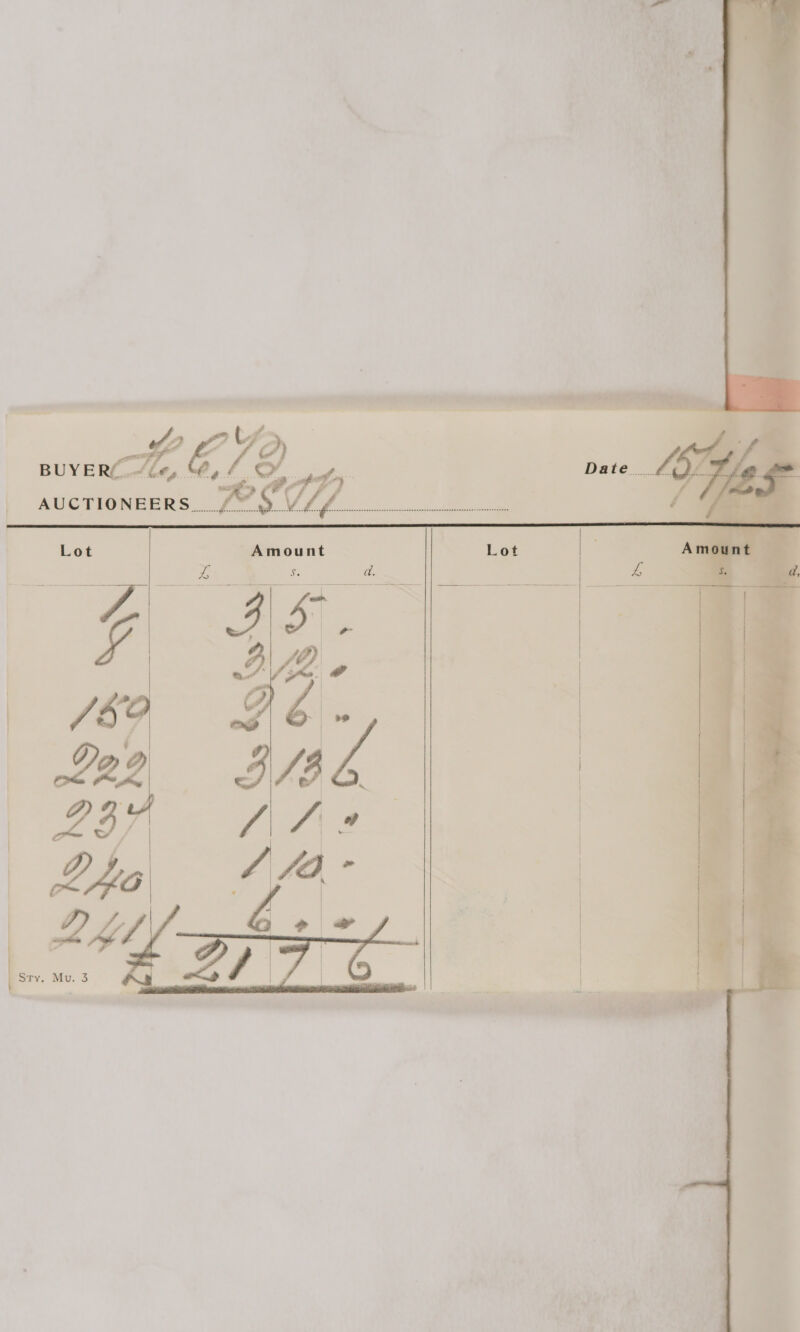 BUYER
Date 15/7/25
AUCTIONEERS
Lot Amount Lot Amount
£ s. d. £ s. d.
4 3 5 .
8 3 12 .
159 2 6 "
222 3 13 6
237 1 1 "
240 1 10 -
241 6 . -
£ 21 7 6
Sty. Mu. 3